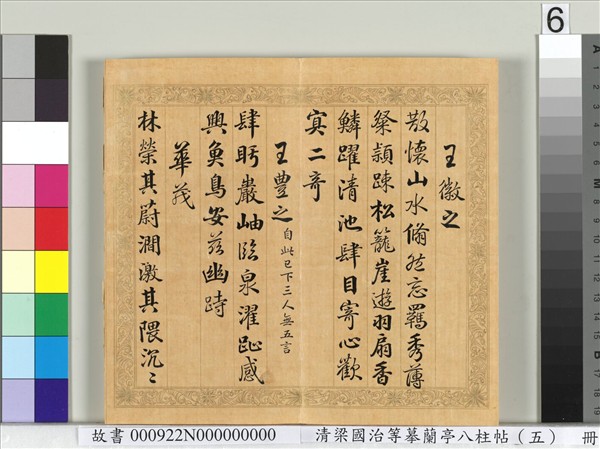 王徽之
散懷山水翛然忘羈秀薄
粲穎踈松籠崖遊羽扇香
鱗躍清池肆目寄心歡
寞二奇
王豐之自此已下三人無五言
肆眄巖岫臨泉濯趾感
興魚鳥安茲幽跱
華茂
林榮其蔚澗激其隈汎〻
6
故書 000922N000000000
清梁國治等摹蘭亭八柱帖（五） 冊